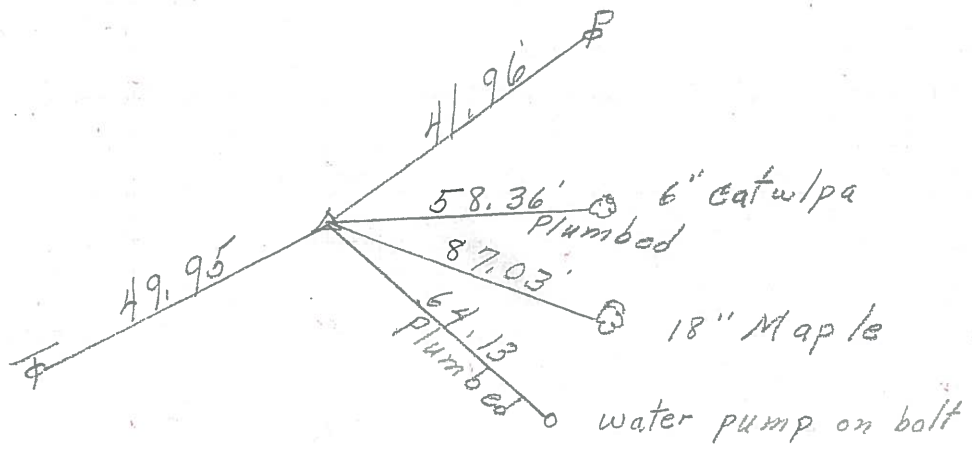 41.96'
58.36'
Plumbed
6" Catwlpa
87.03'
18" Maple
49.95
64.13
Plumbed
water pump on bolt